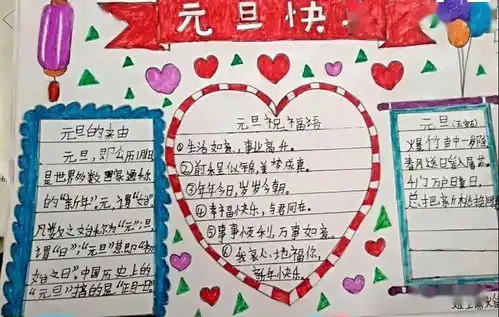 元旦快
元旦的来由
元旦，即公历1月1日
是世界多数国家通称
的“新年”。元，谓“始”
凡数之始称为“元”；旦
谓“日”；“元旦”意即“初
始之日”中国历史上的
“元旦”指的是“正月一日”
元旦祝福语
①生活如意，事业高升。
②前程似锦，美梦成真。
③年年今日，岁岁今朝。
④幸福快乐，与君同在。
⑤事事顺利，万事如意。
⑥
新年快乐。
元旦(王安石)
爆竹声中一岁除
春风送日入屠苏
千门万户日
总把新桃换旧